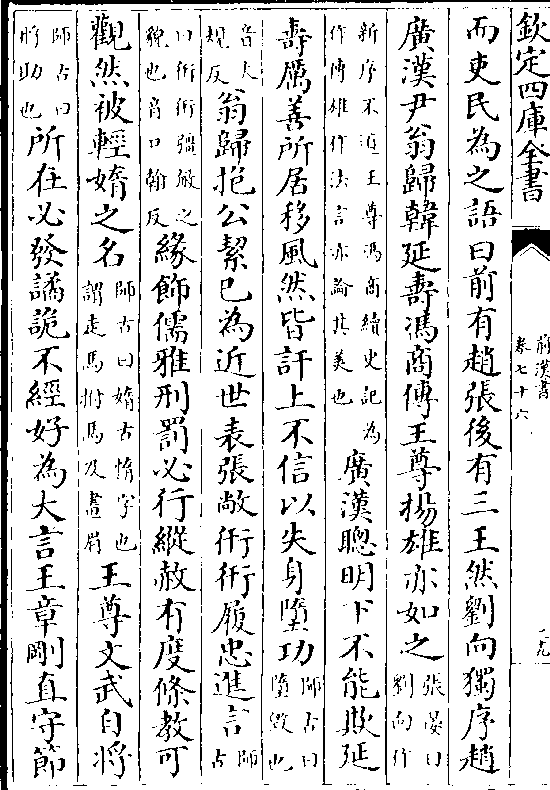 欽定四庫全書
前漢書
卷七十六
十九
而吏民為之語曰前有趙張後有三王然劉向獨序趙
廣漢尹翁歸韓延壽馮商傳王尊揚雄亦如之張晏曰劉向作
新序不道王尊馮商續史記為作傳雄作法言亦論其美也廣漢聰明下不能欺延
壽厲善所居移風然皆訐上不信以失身墮功師古曰墮毁也
音火規反翁歸抱公絜已為近世表張敞衎衎履忠進言師古
曰衎衎彊敏之貌也音口翰反緣飾儒雅刑罰必行縱赦有度條教可
觀然被輕媠之名師古曰媠古惰字也謂走馬拊馬及畫眉王尊文武自將
師古曰將助也所在必發譎詭不經好為大言王章剛直守節